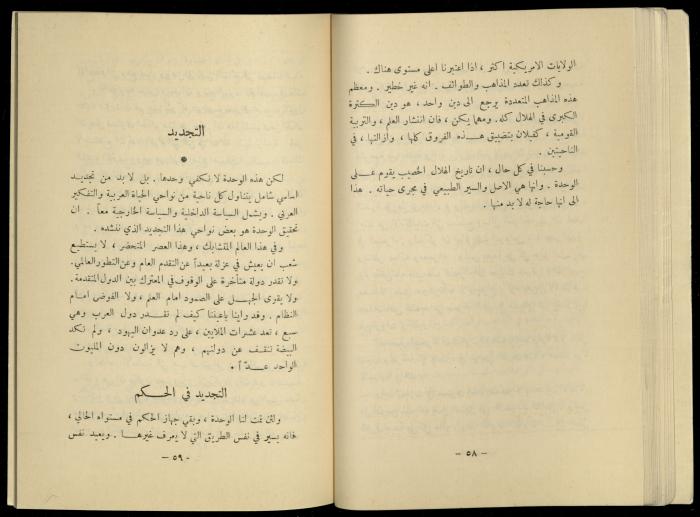 الولايات الاميركية اكثر ، اذا اعتبرنا اعلى مستوى هناك .
وكذلك تعدد المذاهب والطوائف . انه غير خطير . ومعظم
هذه المذاهب المتعددة يرجع الى دين واحد ، هو دين الكثرة
الكبرى في الهلال كله . ومهما يكن ، فان انتشار العلم ، والتربية
القومية ، كفيلان بتضييق هذه الفروق كلها ، وازالتها ، في
الناحيتين .
وحسبنا في كل حال ، ان تاريخ الهلال الخصيب يقوم على
الوحدة . وانها هي الاصل والسير الطبيعي في مجرى حياته . هذا
الى انها حاجة له لا بد منها .
- ٥٨ -
التجديد
لكن هذه الوحدة لا تكفي وحدها . بل لا بد من تجديد
اساسي شامل يتناول كل ناحية من نواحي الحياة العربية والتفكير
العربي . ويشمل السياسة الداخلية والسياسة الخارجية معاً . ان
تحقيق الوحدة هو بعض نواحي هذا التجديد الذي ننشده .
وفي هذا العالم المتشابك ، وهذا العصر المتحضر ، لا يستطيع
شعب ان يعيش في عزلة بعيداً عن التقدم العام وعن التطور العالمي .
ولا تقدر دولة متأخرة على الوقوف في المعترك بين الدول المتقدمة .
ولا يقوى الجهل على الصمود امام العلم ، ولا الفوضى امام
النظام . وقد راينا باعيننا كيف لم تقدر دول العرب وهي
سبع ، تعد عشرات الملايين ، على رد عدوان اليهود ، ولم تكد
البيضة تنقف عن دولتهم ، وهم لا يزالون دون المليون
الواحد عدّاً .
التجديد في الحكم
ولئن تمت لنا الوحدة ، وبقي جهاز الحكم في مستواه الحالي ،
فانه يسير في نفس الطريق التي لا يعرف غيرها . ويعيد نفس
- ٥٩ -